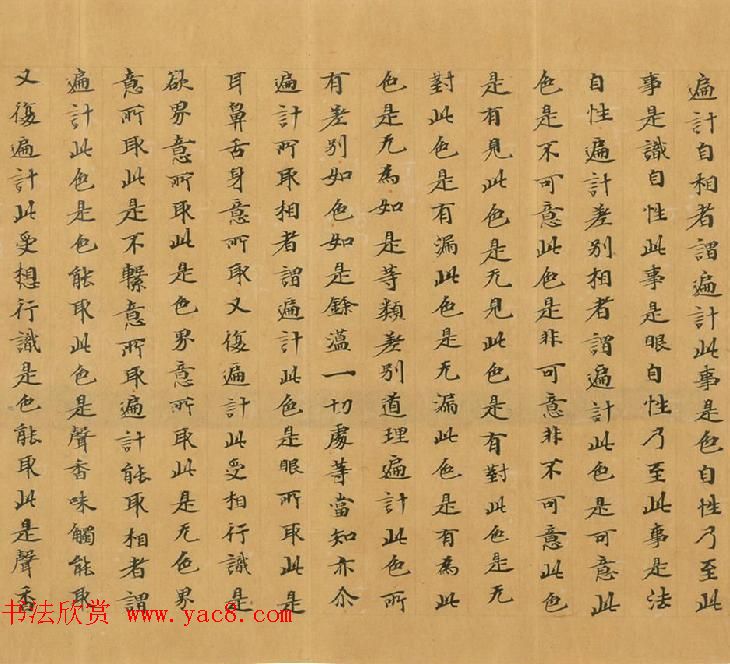 遍計自相者謂遍計此事是色自性乃至此
事是識自性此事是眼自性乃至此事是法
自性遍計差別相者謂遍計此色是可意此
色是不可意此色是非可意非不可意此色
是有見此色是无見此色是有對此色是无
對此色是有漏此色是无漏此色是有為此
色是无為如是等類差別道理遍計此色所
有差別如色如是餘蕰一切處等當知亦尒
遍計所取相者謂遍計此色是眼所取此是
耳鼻舌身意所取又復遍計此受相行識是
欲界意所取此是色界意所取此是无色界
意所取此是不繫意所取遍計能取相者謂
遍計此色是色能取此色是聲香味觸能取
又復遍計此受想行識是色能取此是聲香
书法欣赏 www.yac8.com